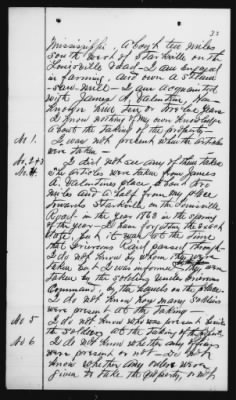 33
Mississippi, about ten miles
south west of Starkville on the
Louisville Road - I am engaged
in farming, and own a Steam
-saw-Mill - I am acquainted
with James A. Valentine, have
known him five or
I know nothing of my own knowledge
about the taking of the property -
No 1. I was not present when the articles
were taken -
No. 2 & 3 I did not see any of them taken
No. 4. The articles were taken from James
A. Valentines place about
miles and a half from my place
towards Starkville on the Louisville
Road - in the year 1863 in the spring
of the year - I have forgotten the exact
date, but it was at the time
that Griersons Raid passed through -
I do not know by whom they were
taken but I was informed they were
taken by the soldiers under Grierson
Command, by the hands on the place
I do not know how many soldiers
were present at the taking -
No 5 I do not know who was present beside
the soldiers at the taking of the
No 6 I do not know whether any officers
were present or not - do not
know whether any orders were
given to take the property, or not